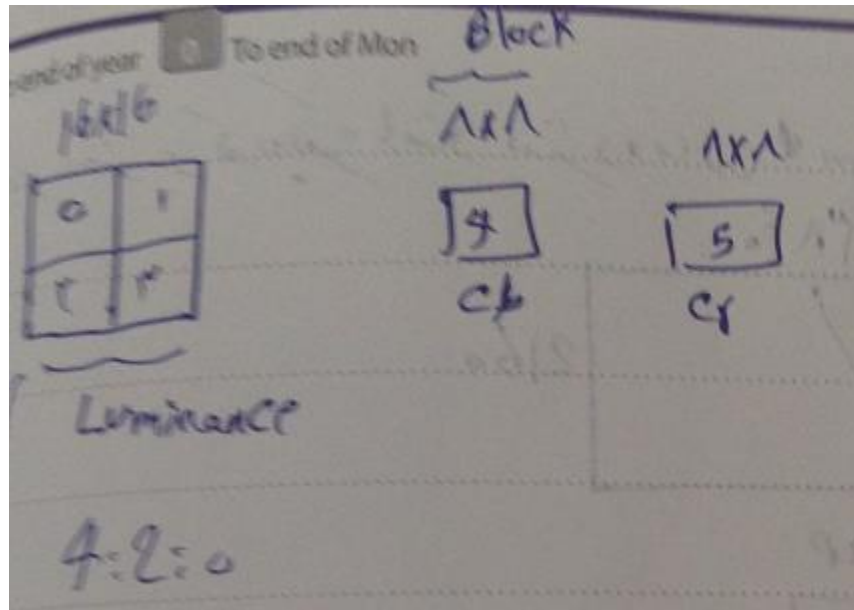 end of year To end of Mon
Block
16x16
٨x٨ ٨x٨
0 1
٢ ٣
4 5
Cb Cr
Luminance
4:2:0